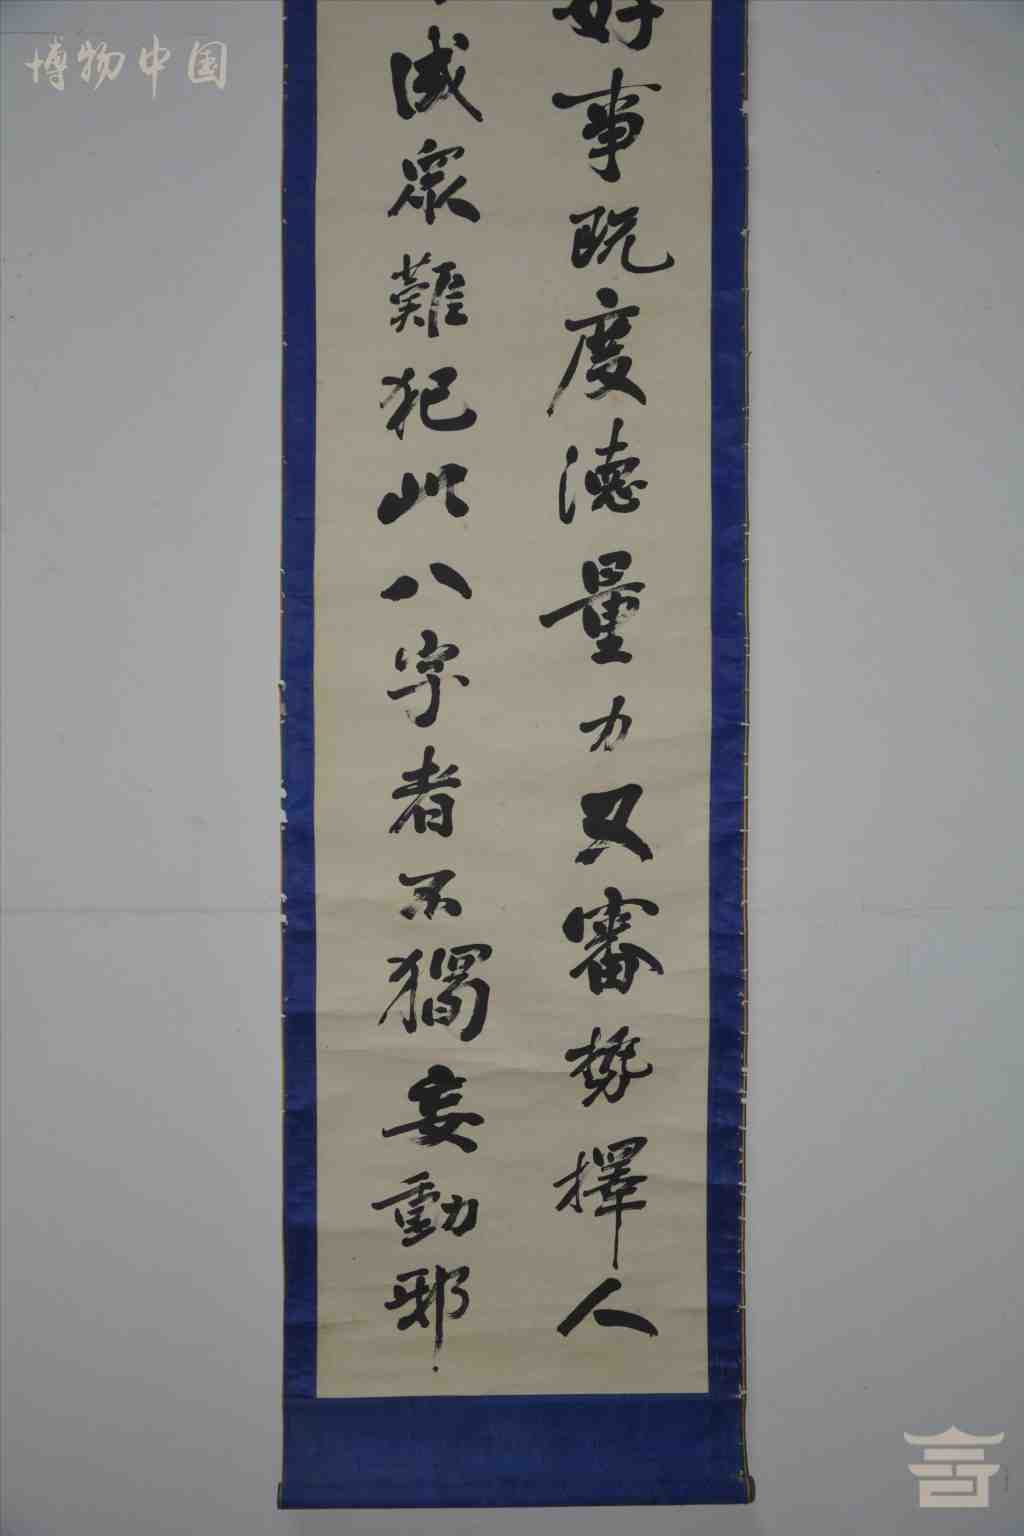 博物中国
好事既度德量力又審勢擇人
滅眾難犯此八字者不獨妄動邪